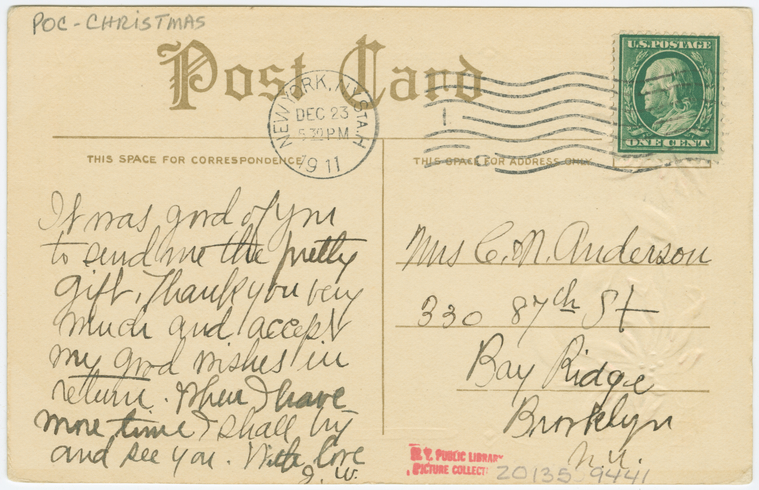 POC-CHRISTMAS
Post Card
NEW YORK, N.Y. STA. H
DEC 23
5 30 PM
1911
U.S. POSTAGE
ONE CENT
THIS SPACE FOR CORRESPONDENCE
THIS SPACE FOR ADDRESS ONLY
It was good of you
to send me the pretty
gift. Thank you very
much and accept
my good wishes in
return. When I have
more time I shall try
and see you. With love
J. W.
Mrs C. N. Anderson
330 87th St
Bay Ridge
Brooklyn
N.Y.
N.Y. PUBLIC LIBRARY
PICTURE COLLECT
20135 9441